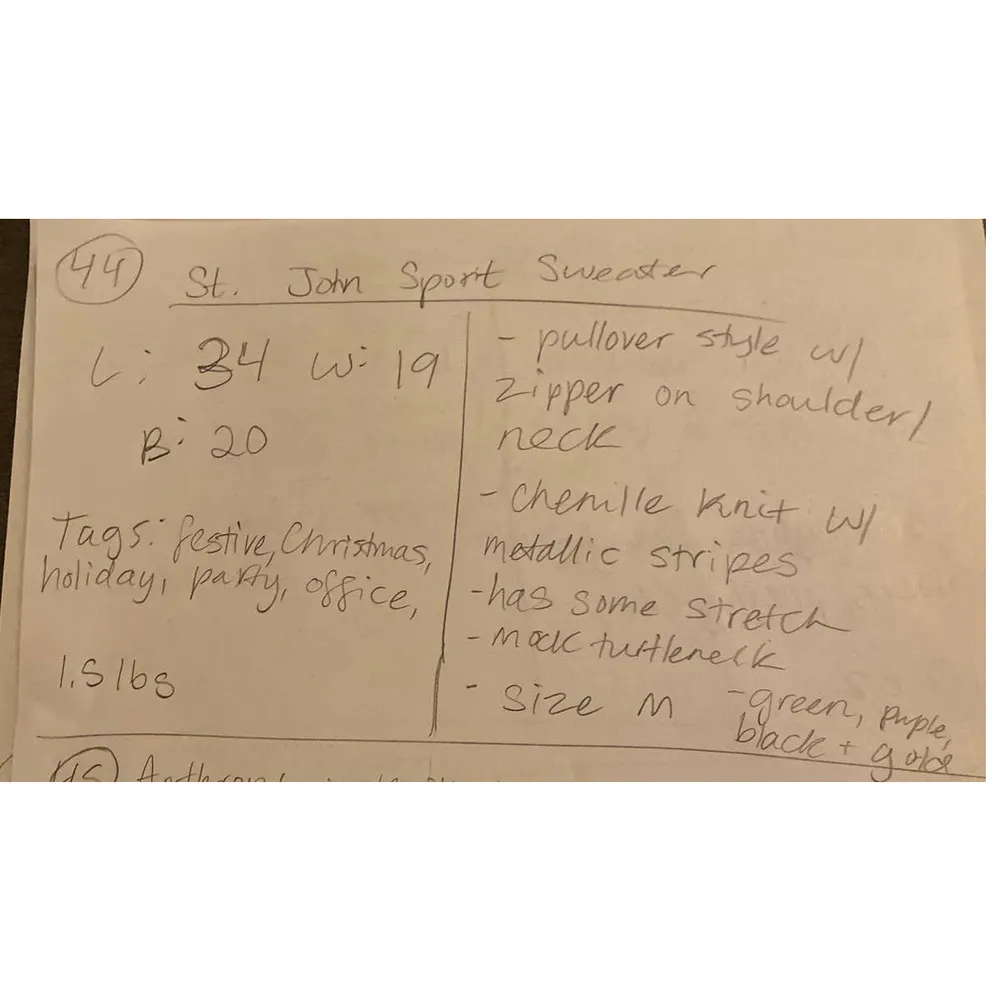 44 St. John Sport Sweater
L: 34 W: 19
B: 20
Tags: festive, Christmas,
holiday, party, office,
1.5 lbs
- pullover style w/
zipper on shoulder/
neck
- Chenille Knit w/
metallic stripes
- has some stretch
- Mock turtleneck
- Size M - green, purple,
black + gold